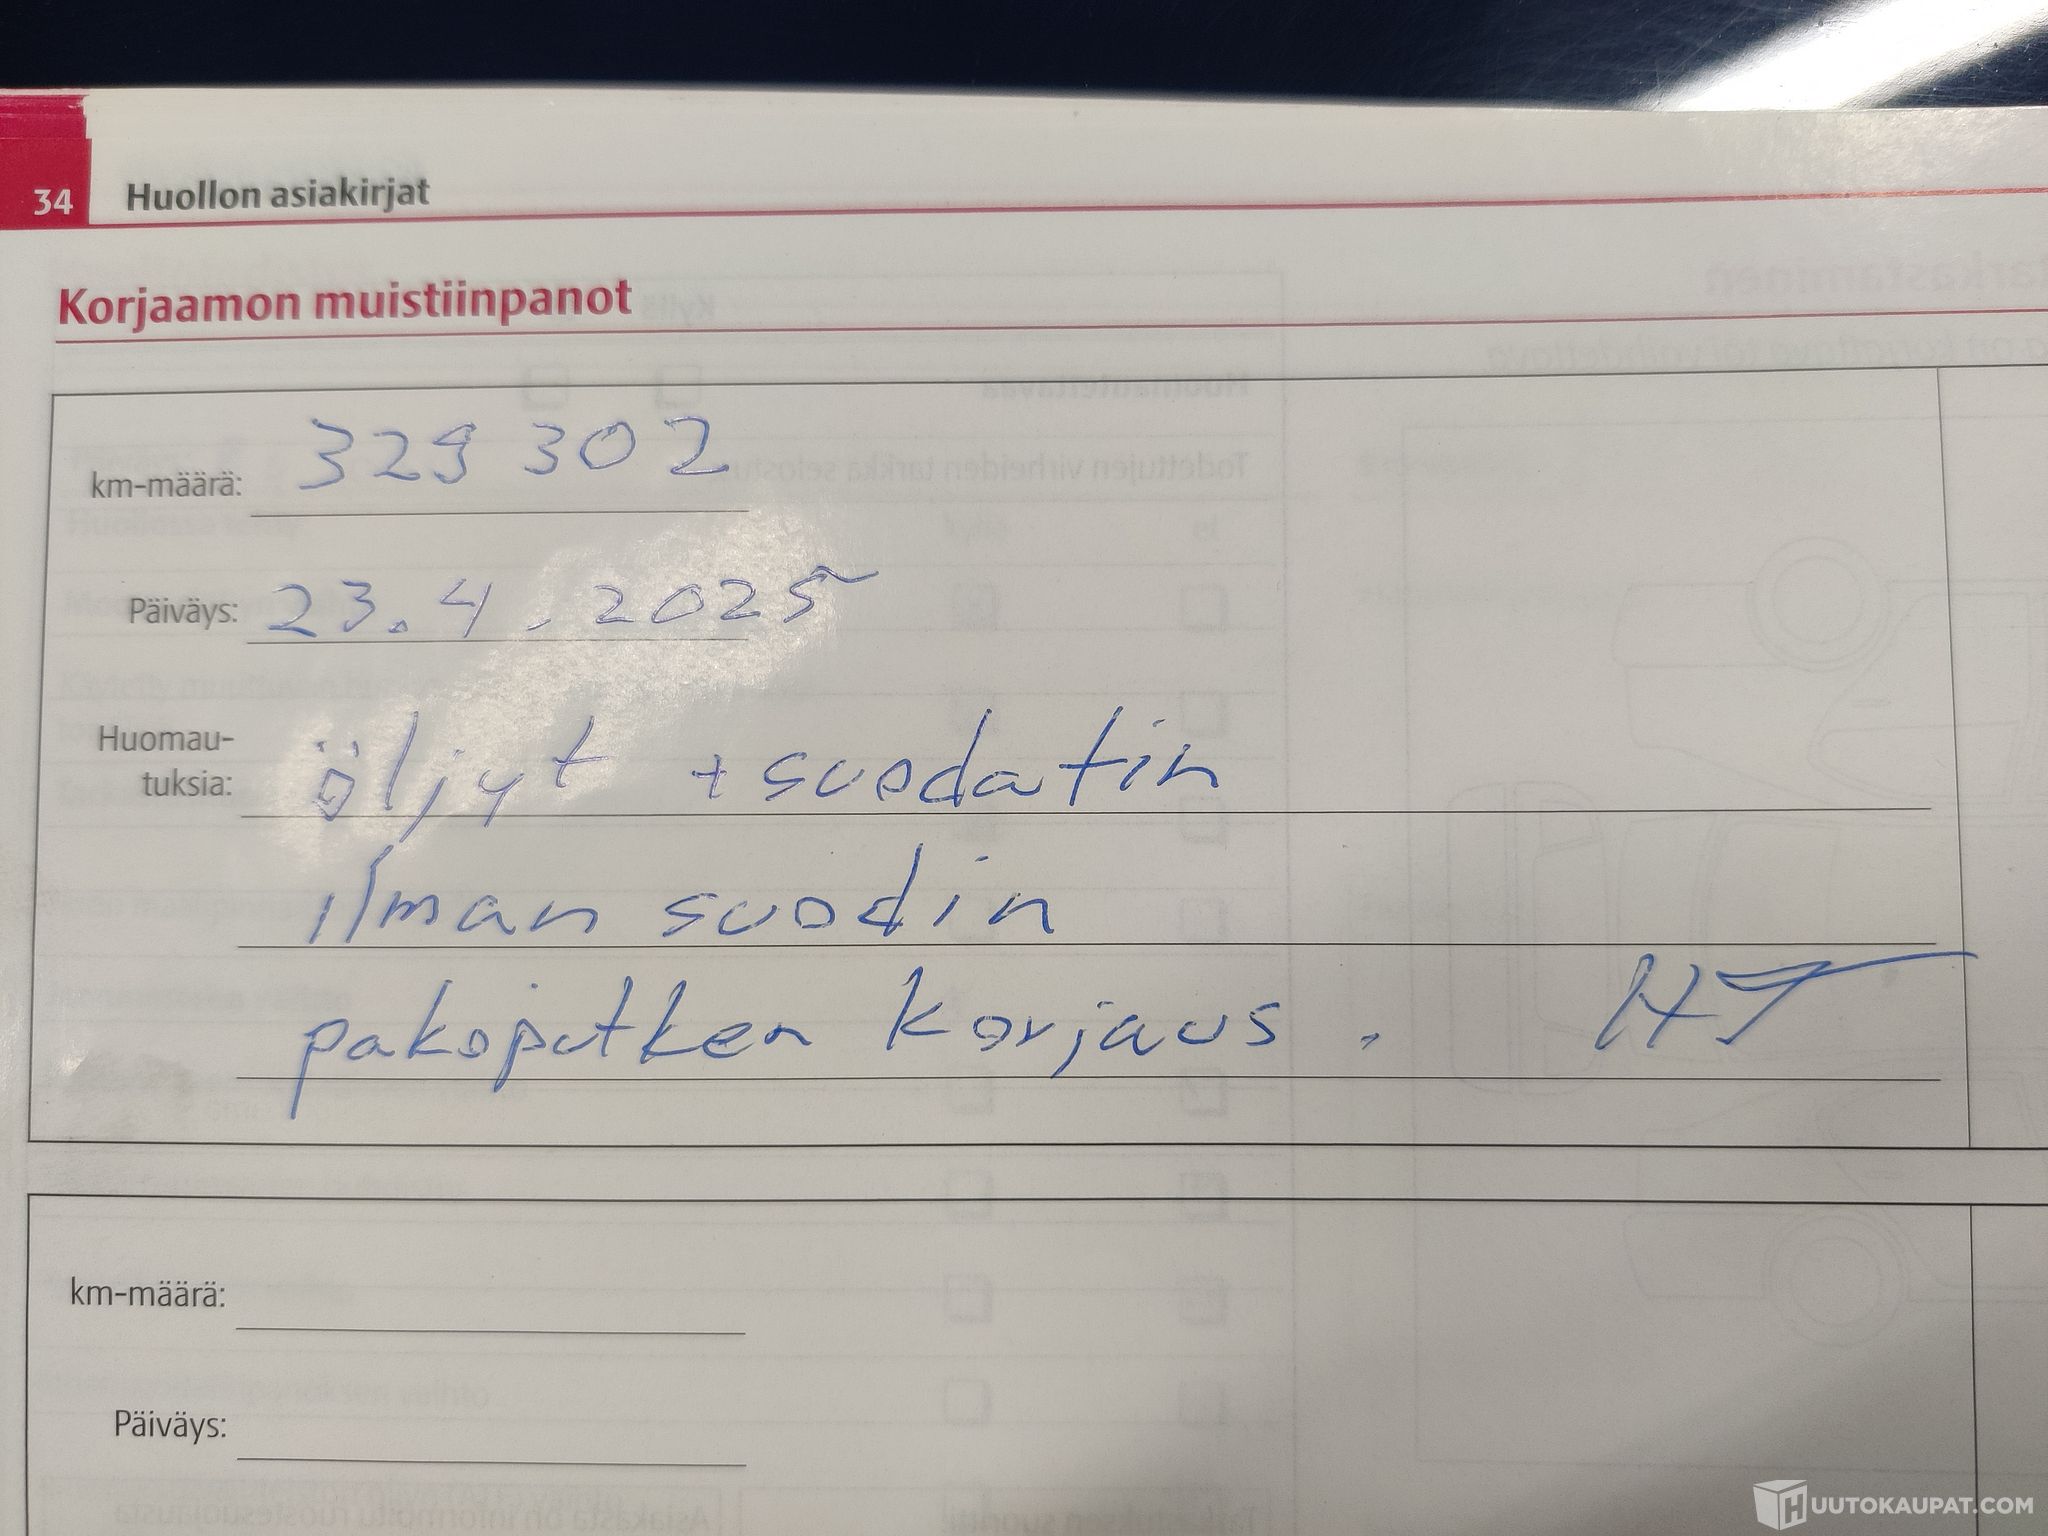 34 Huollon asiakirjat
Korjaamon muistiinpanot
km-määrä: 329 302
Päiväys: 23.4.2025
Huomau-
tuksia: öljyt + suodatin
ilman suodin
pakoputken korjaus. HT
km-määrä:
Päiväys:
HUUTOKAUPAT.COM